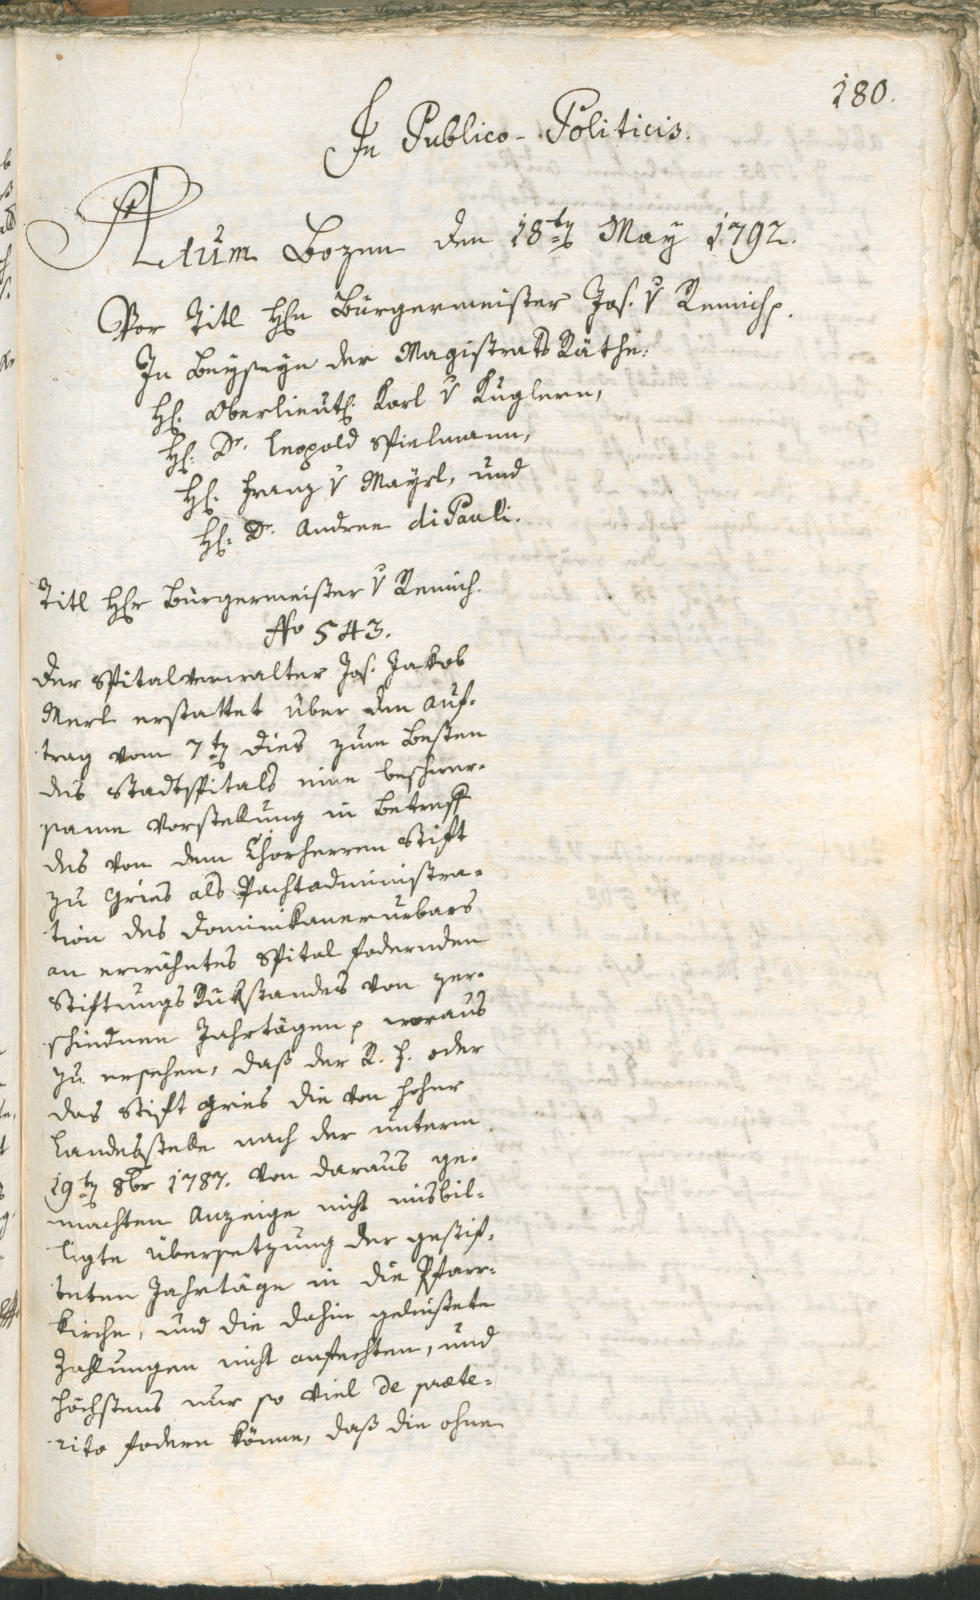 180.
In Publico-Politicis.
Actum Bozen den 18ten May 1792.
Vor Titl Hrn Bürgermeister Jos. v Remich p.
In Beyseyn der Magistrats Räthe:
Hr. Oberlieut. Karl v Kuglern,
Hr. Dr. Leopold Spielmann,
Hr. Franz v Mayrl, und
Hr. Dr. Andree di Pauli.
Titl Hr Bürgermeister v Remich.
No 543.
Der Spitalverwalter Jos. Jakob
Merl erstattet über den Auf-
trag vom 7ten dies zum Besten
des Stadtspitals eine beschwer-
same Vorstellung in Betreff
des von dem Chorherren Stift
zu Gries als Pachtadministra-
tion des Dominikanerurbars
an erwähntes Spital fodernden
Stiftungs Rukstandes von ver-
schiednen Jahrtägen p woraus
zu ersehen, daß der R. F. oder
das Stift Gries die von hoher
Landesstelle nach der unterm
19ten 8br 1787. von daraus ge-
machten Anzeige nicht misbil-
ligte Übersetzung der gestif-
teten Jahrtäge in die Pfarr-
kirche, und die dahin geleistete
Zahlungen nicht anfechten, und
höchstens nur so viel de præte-
rito fodern könne, daß die ohne